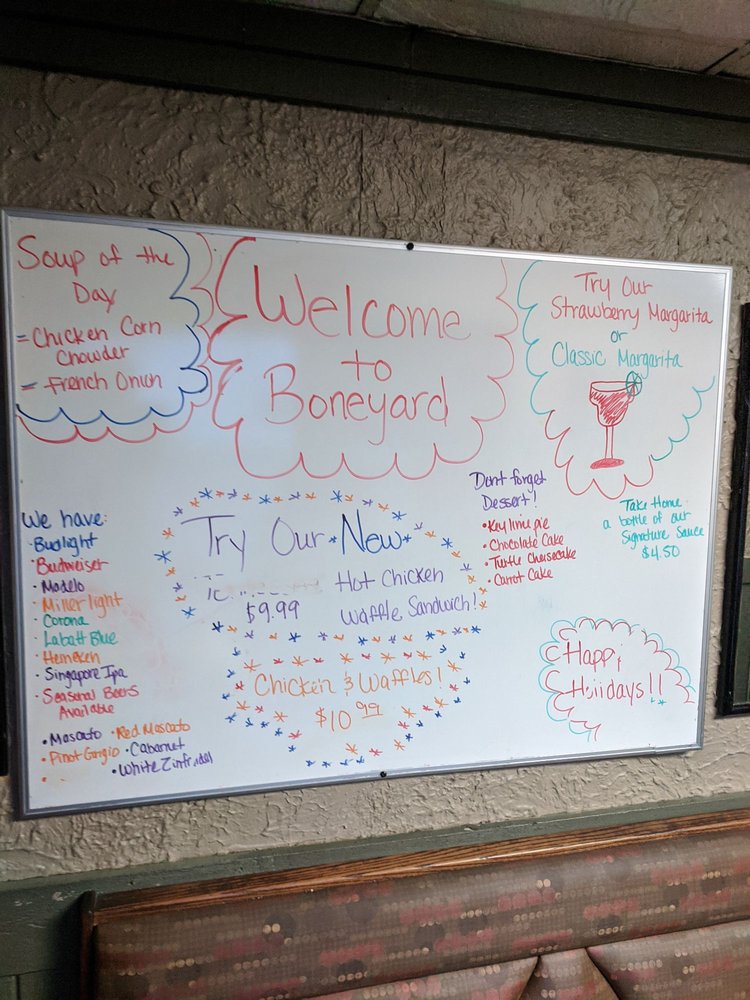 Soup of the
Day
= Chicken Corn
Chowder
= French Onion
Welcome
to
Boneyard
Try Our
Strawberry Margarita
or
Classic Margarita
We have:
• Budlight
• Budweiser
• Modelo
• Miller light
• Corona
• Labatt Blue
• Heineken
• Singapore Ipa
• Seasonal Beers
Available
• Moscato • Red Moscato
• Pinot Grigio • Cabarnet
• White Zinfandel
Try Our New
Hot Chicken
$9.99 Waffle Sandwich!
Chicken & Waffles!
$10.99
Dont forget
Dessert!
• Key lime pie
• Chocolate Cake
• Turtle Cheesecake
• Carrot Cake
Take Home
a bottle of our
Signature Sauce
$4.50
Happy
Holidays!!